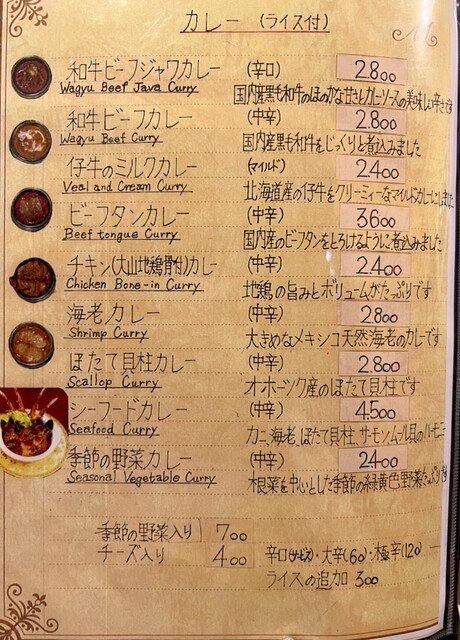 カレー (ライス付)
和牛ビーフジャワカレー (辛口) 2.800
Wagyu Beef Java Curry 国内産黒毛和牛のほのかな甘さとカレーソースの美味しい辛さ
和牛ビーフカレー (中辛) 2.800
Wagyu Beef Curry 国内産黒毛和牛をじっくりと煮込みました
仔牛のミルクカレー (マイルド) 2.400
Veal and Cream Curry 北海道産の仔牛をクリーミィーなマイルドカレーにしました
ビーフタンカレー (中辛) 3600
Beef tongue Curry 国内産のビーフタンをとろけるように煮込みました
チキン(大山地鶏骨付)カレー (中辛) 2.400
Chicken Bone-in Curry 地鶏の旨みとボリュームがたっぷりです
海老カレー (中辛) 2800
Shrimp Curry 大きめなメキシコ天然海老のカレーです
ほたて貝柱カレー (中辛) 2.800
Scallop Curry オホーツク産のほたて貝柱です
シーフードカレー (中辛) 4.500
Seafood Curry カニ、海老、ほたて貝柱、サーモン、ムール貝のハーモニー
季節の野菜カレー (中辛) 2400
Seasonal Vegetable Curry 根菜を中心とした季節の緑黄色野菜たっぷり
季節の野菜入り 700
チーズ入り 400
辛口(サービス)・大辛(60)・極辛(120)
ライスの追加 300